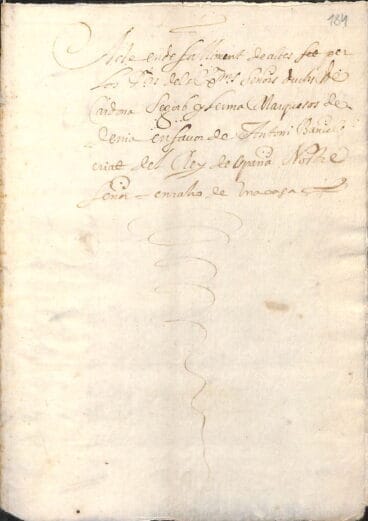 184
Acte en de falliment de altes fet per
Los Srs dels Exms Señors duchs de
Cardona Segorb y Lerma Marquesos de
Denia en favor de Antoni
criat del Rey de España Nostre
Señor en raho de una casa